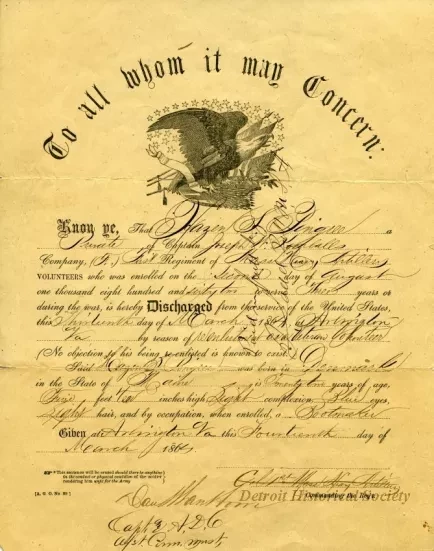 To all whom it may Concern:
Know ye, That Hazen S. Pingree a
Private of Captain Joseph W.
Company, (F,) First Regiment of Mass Heavy Artillery
VOLUNTEERS who was enrolled on the Second day of August
one thousand eight hundred and sixty two to serve Three years or
during the war, is hereby Discharged from the service of the United States,
this Thirteenth day of March, 1864, at Arlington
Va by reason of Volunteer
(No objection to his being re-enlisted is known to exist.)
Said Hazen S. Pingree was born in Denmark
in the State of Maine is Twenty two years of age,
Five feet inches high Light complexion, Blue eyes,
Light hair, and by occupation, when enrolled, a Bootmaker
Given at Arlington Va this Fourteenth day of
March 1864
This sentence will be erased should there be anything
in the conduct or physical condition of the soldier
rendering him unfit for the Army
[A. G. O. No. 99]
Commanding the Reg't
Detroit Historical Society
Capt & A.D.C
Asst Com. Must,